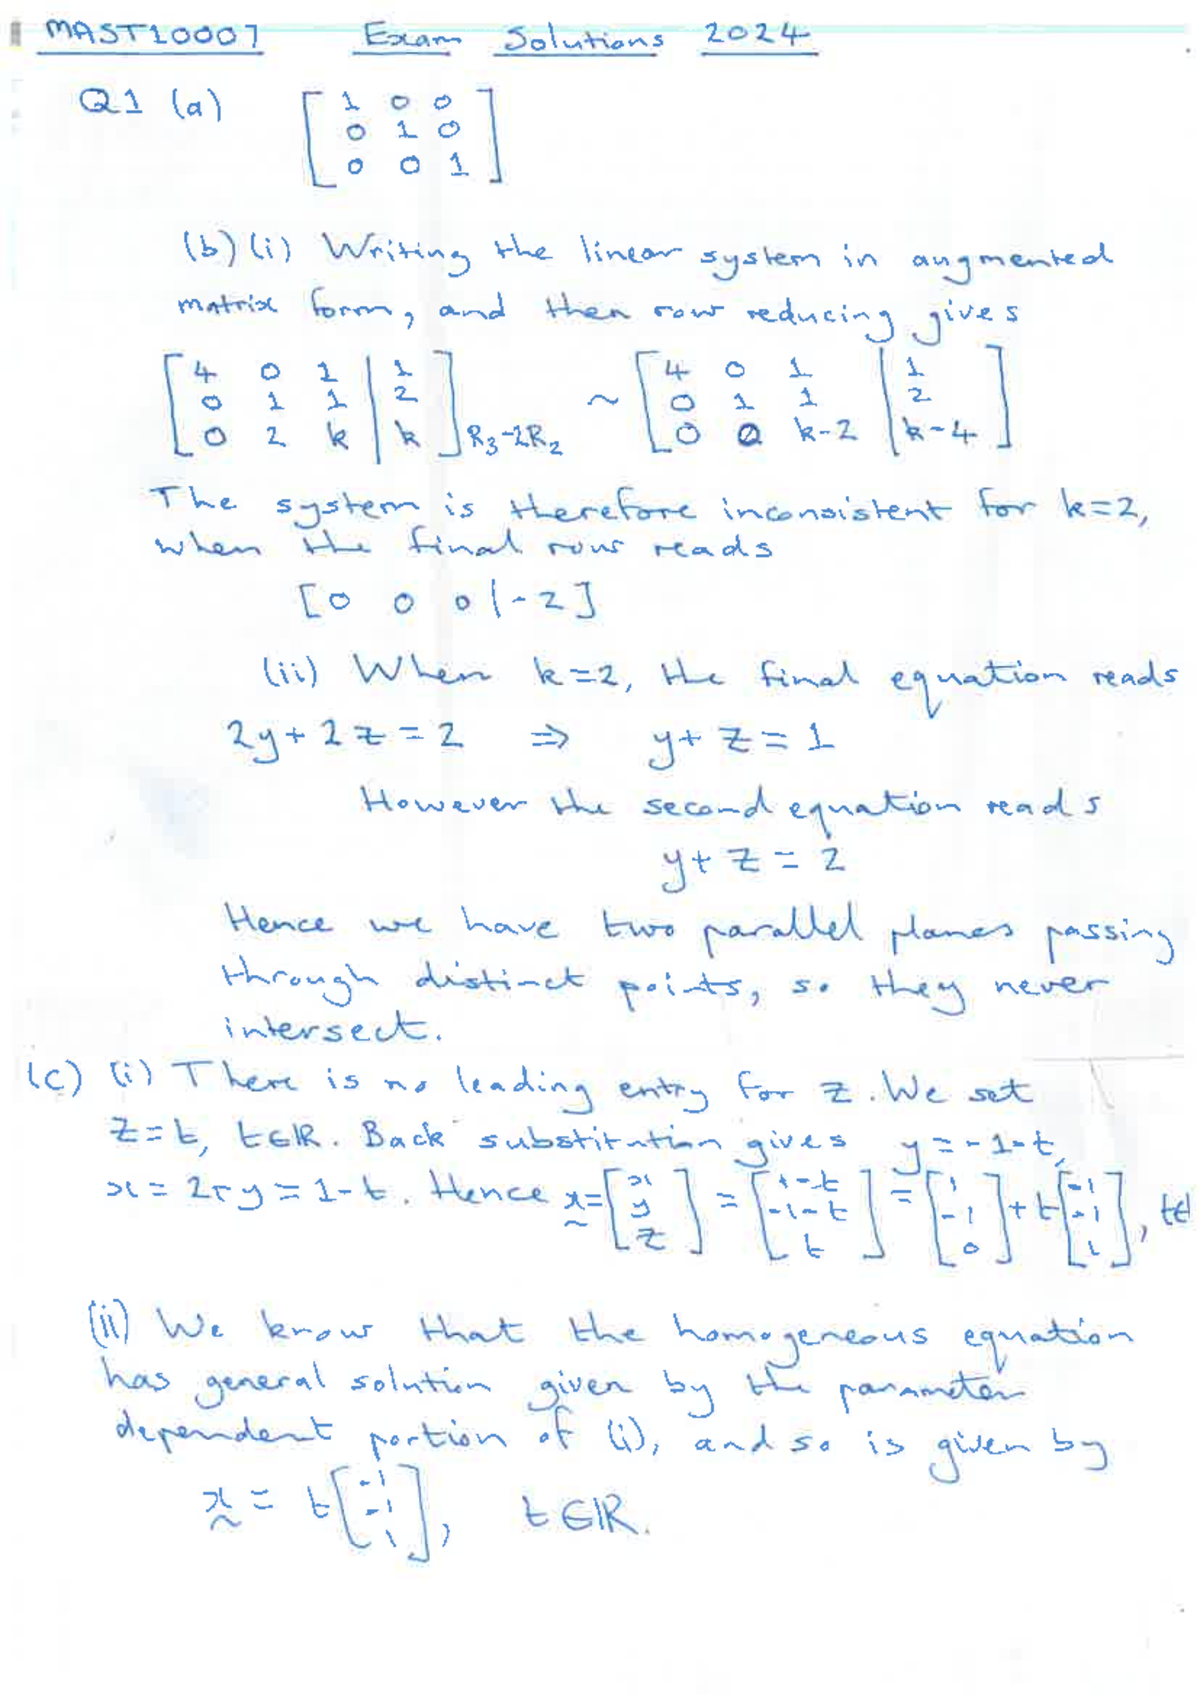 MAST10007 Exam Solutions 2024
Q1 (a) [1 0 0
0 1 0
0 0 1]
(b) (i) Writing the linear system in augmented
matrix form, and then row reducing gives
[4 0 1 | 1
0 1 1 | 2
0 2 k | k] R₃-2R₂ ~ [4 0 1 | 1
0 1 1 | 2
0 0 k-2 | k-4]
The system is therefore inconsistent for k=2,
when the final row reads
[0 0 0 | -2]
(ii) When k=2, the final equation reads
2y+2z=2 ⇒ y+z=1
However the second equation reads
y+z=2
Hence we have two parallel planes passing
through distinct points, so they never
intersect.
(c) (i) There is no leading entry for z. We set
z=t, t∈ℝ. Back substitution gives y=-1-t,
x=2+y=1-t. Hence x̰=[x y z]=[1-t -1-t t]=[1 -1 0]+t[-1 -1 1], t∈
(ii) We know that the homogeneous equation
has general solution given by the parameter
dependent portion of (i), and so is given by
x̰=t[-1 -1 1], t∈ℝ.